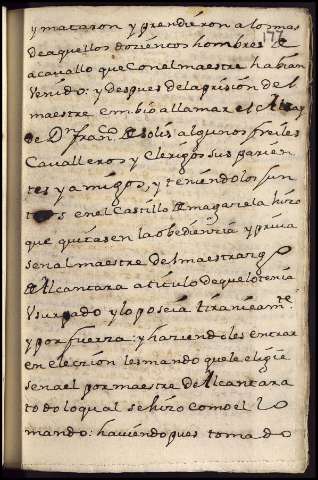 y mataron y prendieron a los mas
177
de aquellos dozientos hombres de
a cavallo que con el maestre habian
venido: y despues de la prision del
maestre embio a llamar el Alcay
de Dn. franco. de Solis algunos freiles
Cavalleros y clerigos sus parien
tes y amigos, y teniendolos jun
tos en el Castillo de magasela hizo
que quitasen la obediencia y priva
sen al maestre del maestrazgo
de Alcantara a titulo de que lo tenia
Vsurpado y lo poseia tiranicamte.
y por fuerza: y haziendoles entrar
en elecsion les mando que le eligie
sen a el por maestre de Alcantara
todo lo qual se hizo como el lo
mando: haviendo pues tomado